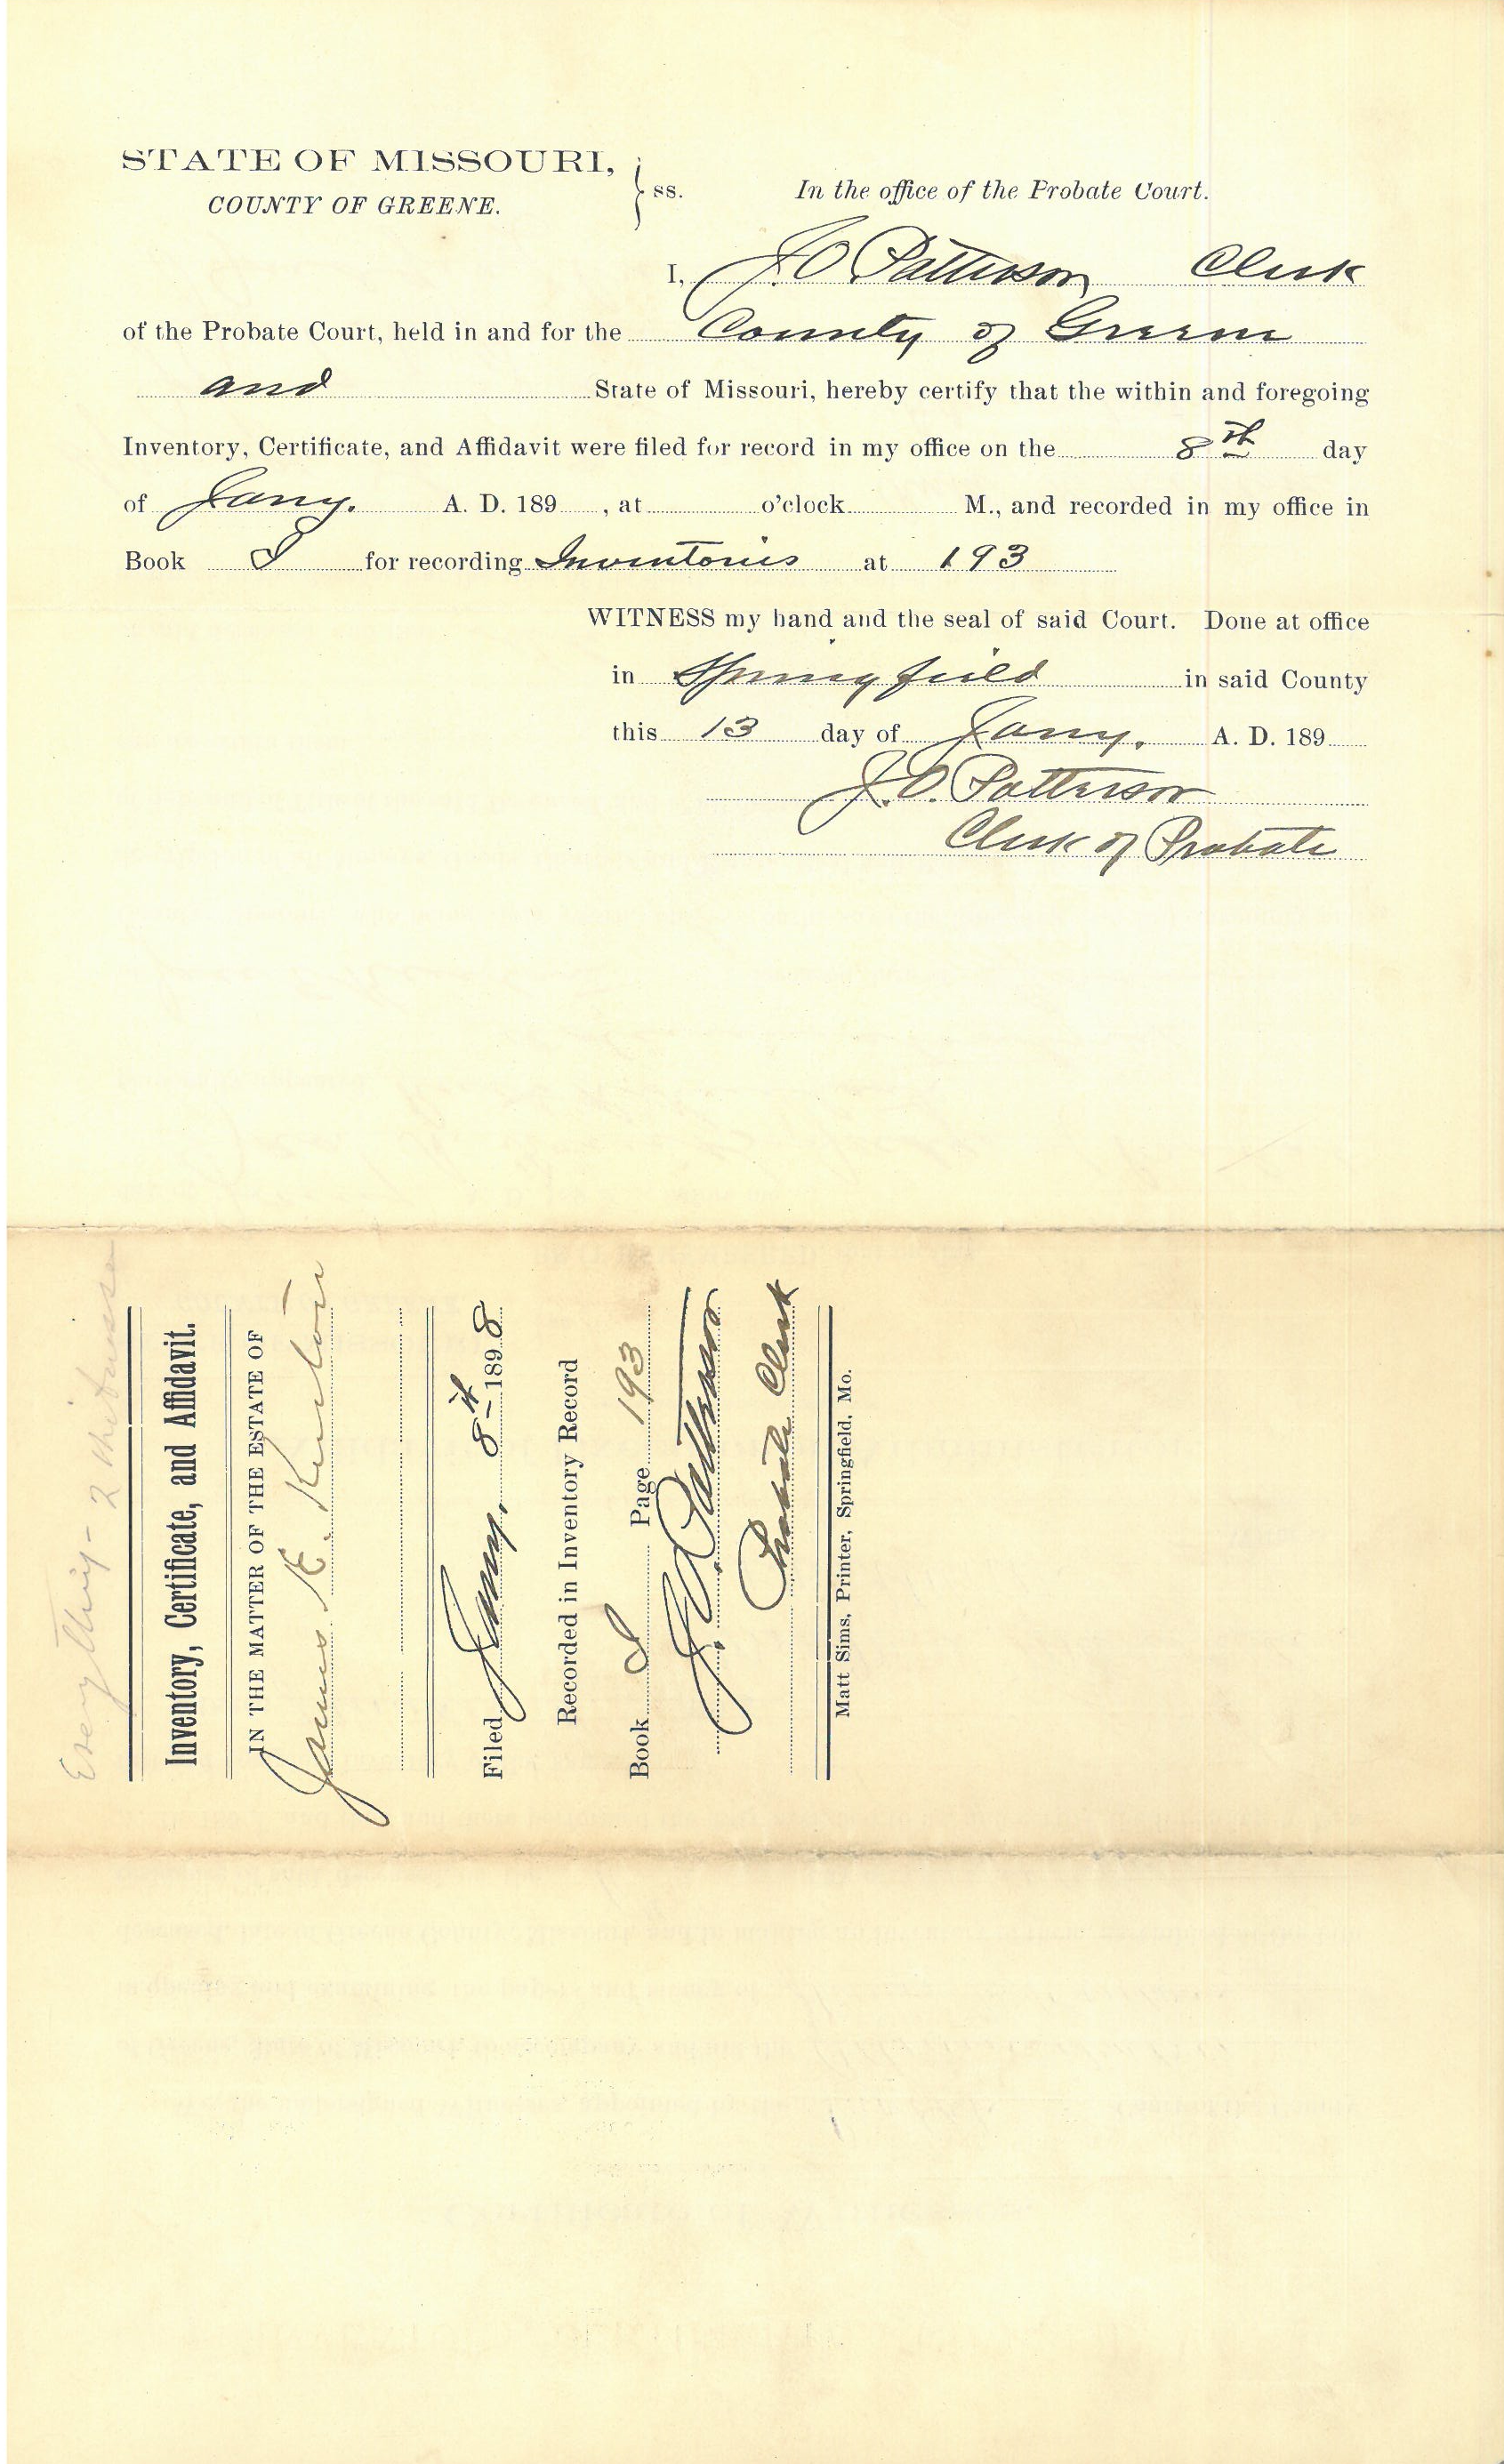 STATE OF MISSOURI,
COUNTY OF GREENE.
} ss.
In the office of the Probate Court.
I, J. O. Patterson Clerk
of the Probate Court, held in and for the County of Greene
and State of Missouri, hereby certify that the within and foregoing
Inventory, Certificate, and Affidavit were filed for record in my office on the 8th day
of Jany. A. D. 189 , at o'clock M., and recorded in my office in
Book I for recording Inventories at 193
WITNESS my hand and the seal of said Court. Done at office
in Springfield in said County
this 13 day of Jany. A. D. 189
J. O. Patterson
Clerk of Probate
Everything - 2
Inventory, Certificate, and Affidavit.
IN THE MATTER OF THE ESTATE OF
James K.
Filed Jany. 8th 1898
Recorded in Inventory Record
Book I Page 193
J. O. Patterson
Probate Clerk
Matt Sims, Printer, Springfield, Mo.